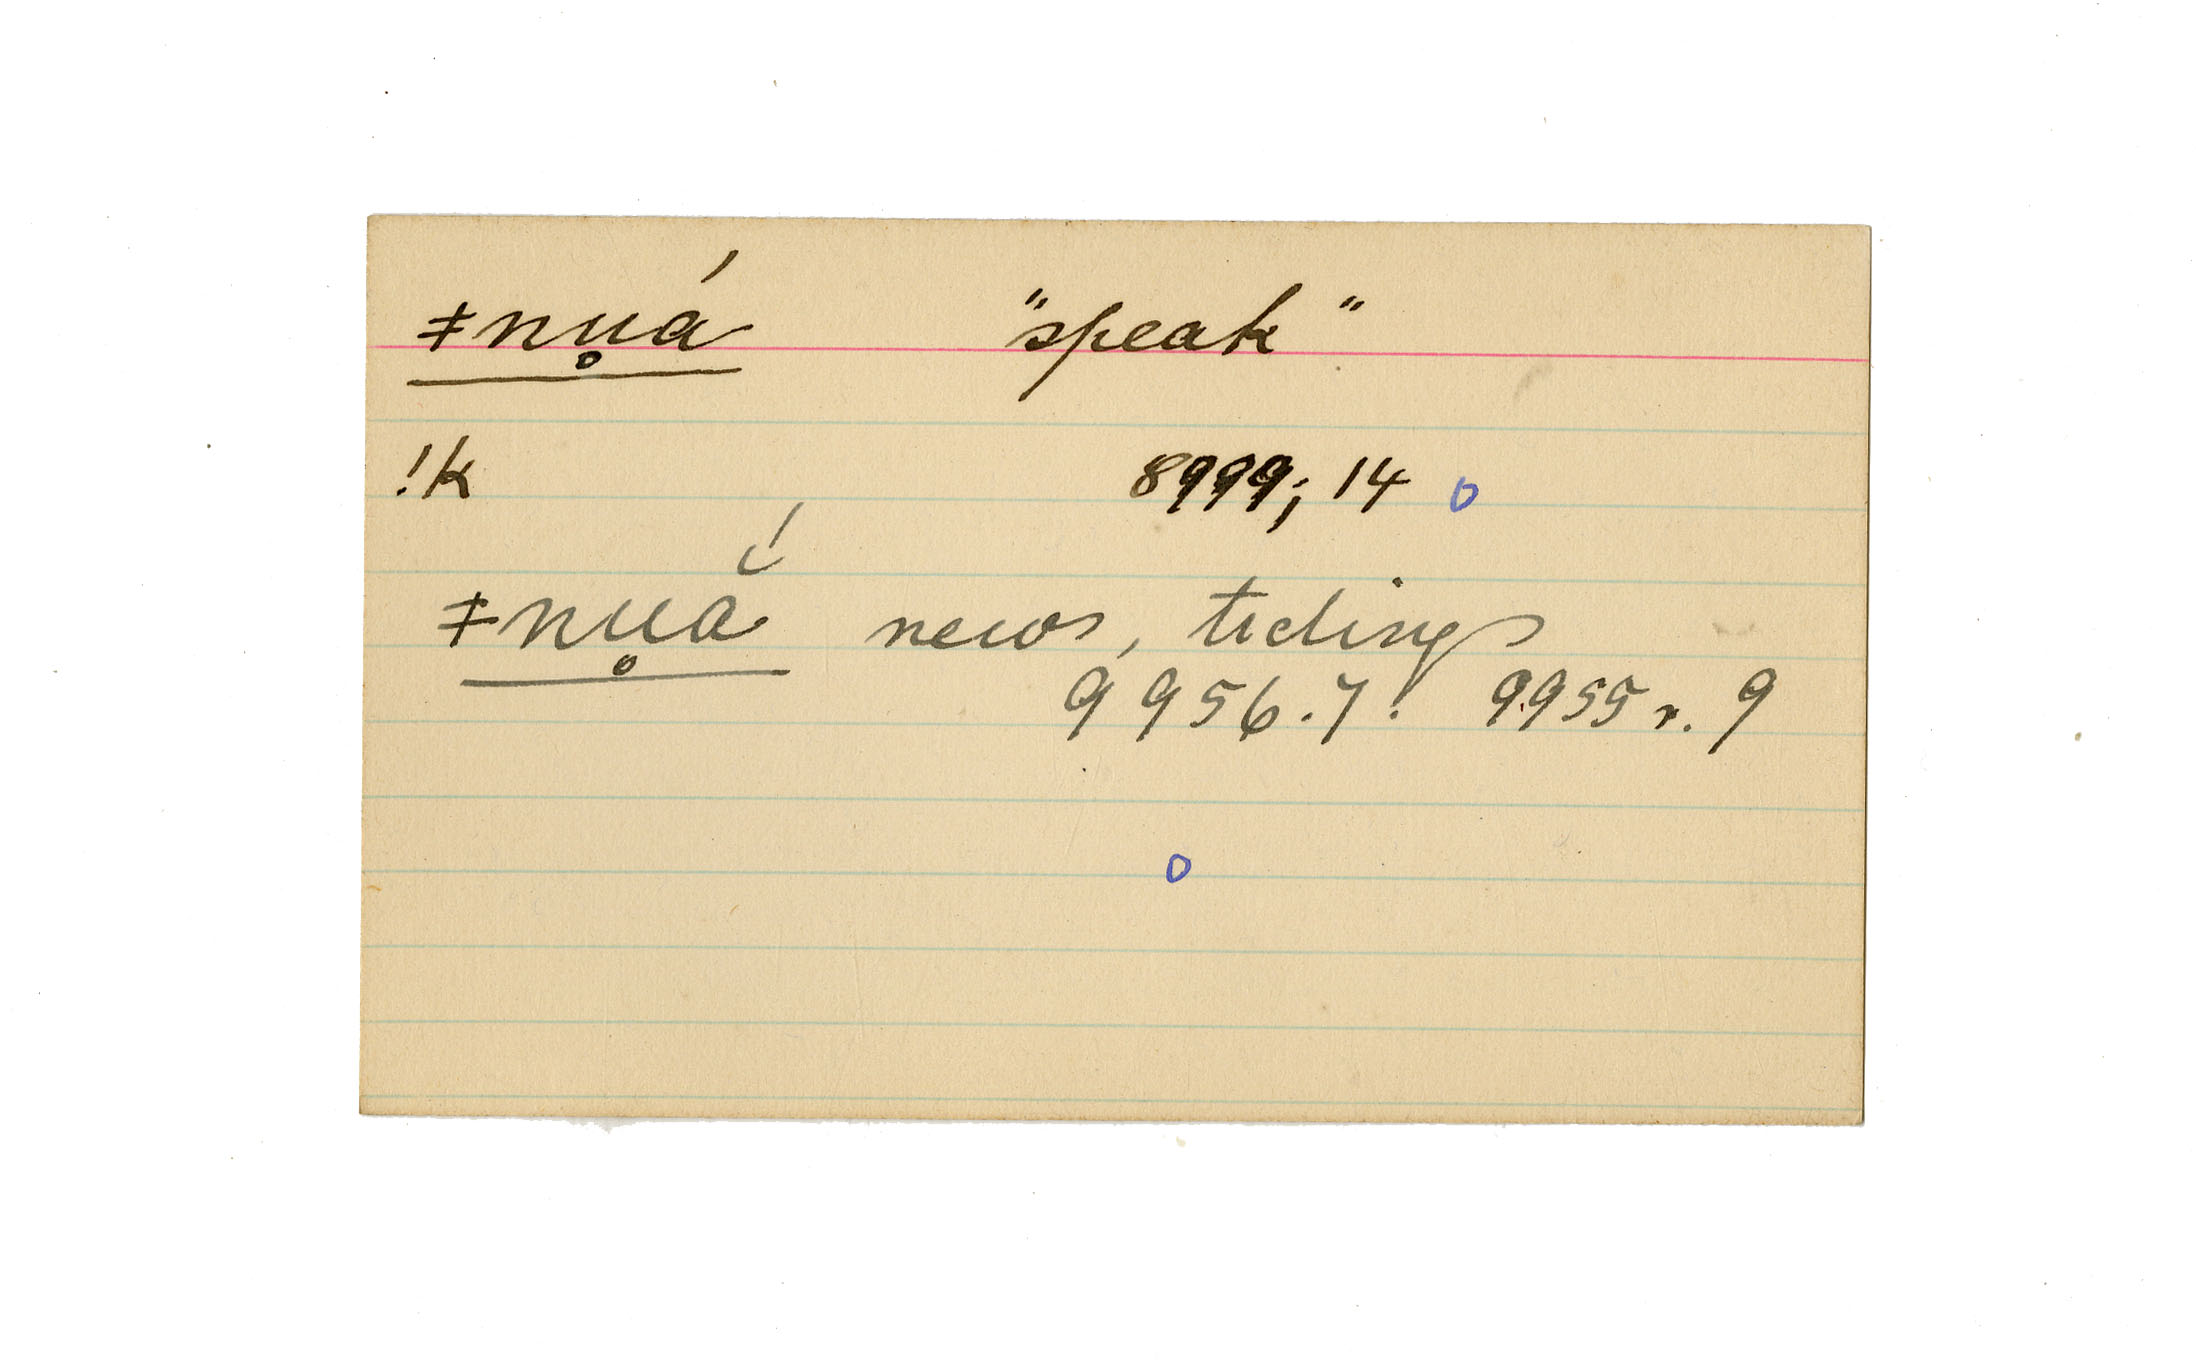 ǂnu̥á "speak"
!k 8999; 14 o
ǂnu̥ắ news, tidings
9956.7. 9955 r. 9
o